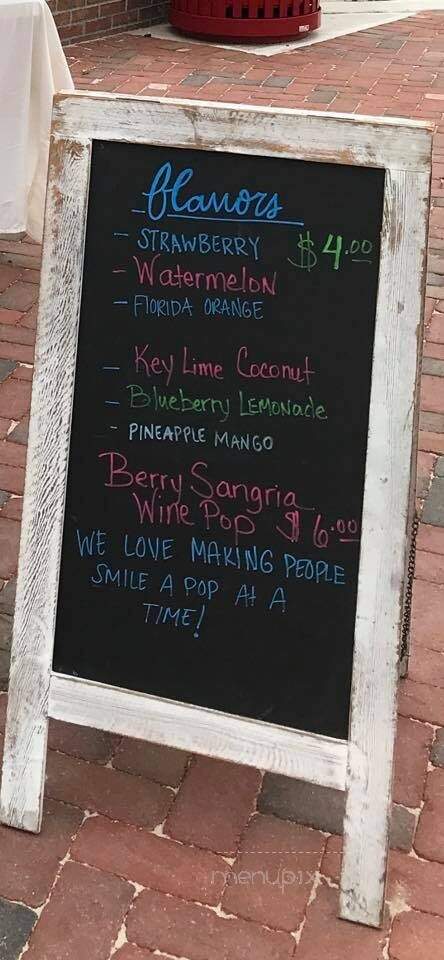 flavors
- STRAWBERRY $4.00
- Watermelon
- FlORIDA ORANGE
- Key Lime Coconut
- Blueberry LEMONade
- PINEAPPLE MANGO
Berry Sangria
Wine Pop $6.00
WE LOVE MAKING PEOPLE
SMILE A POP At A
TIME!
menupix